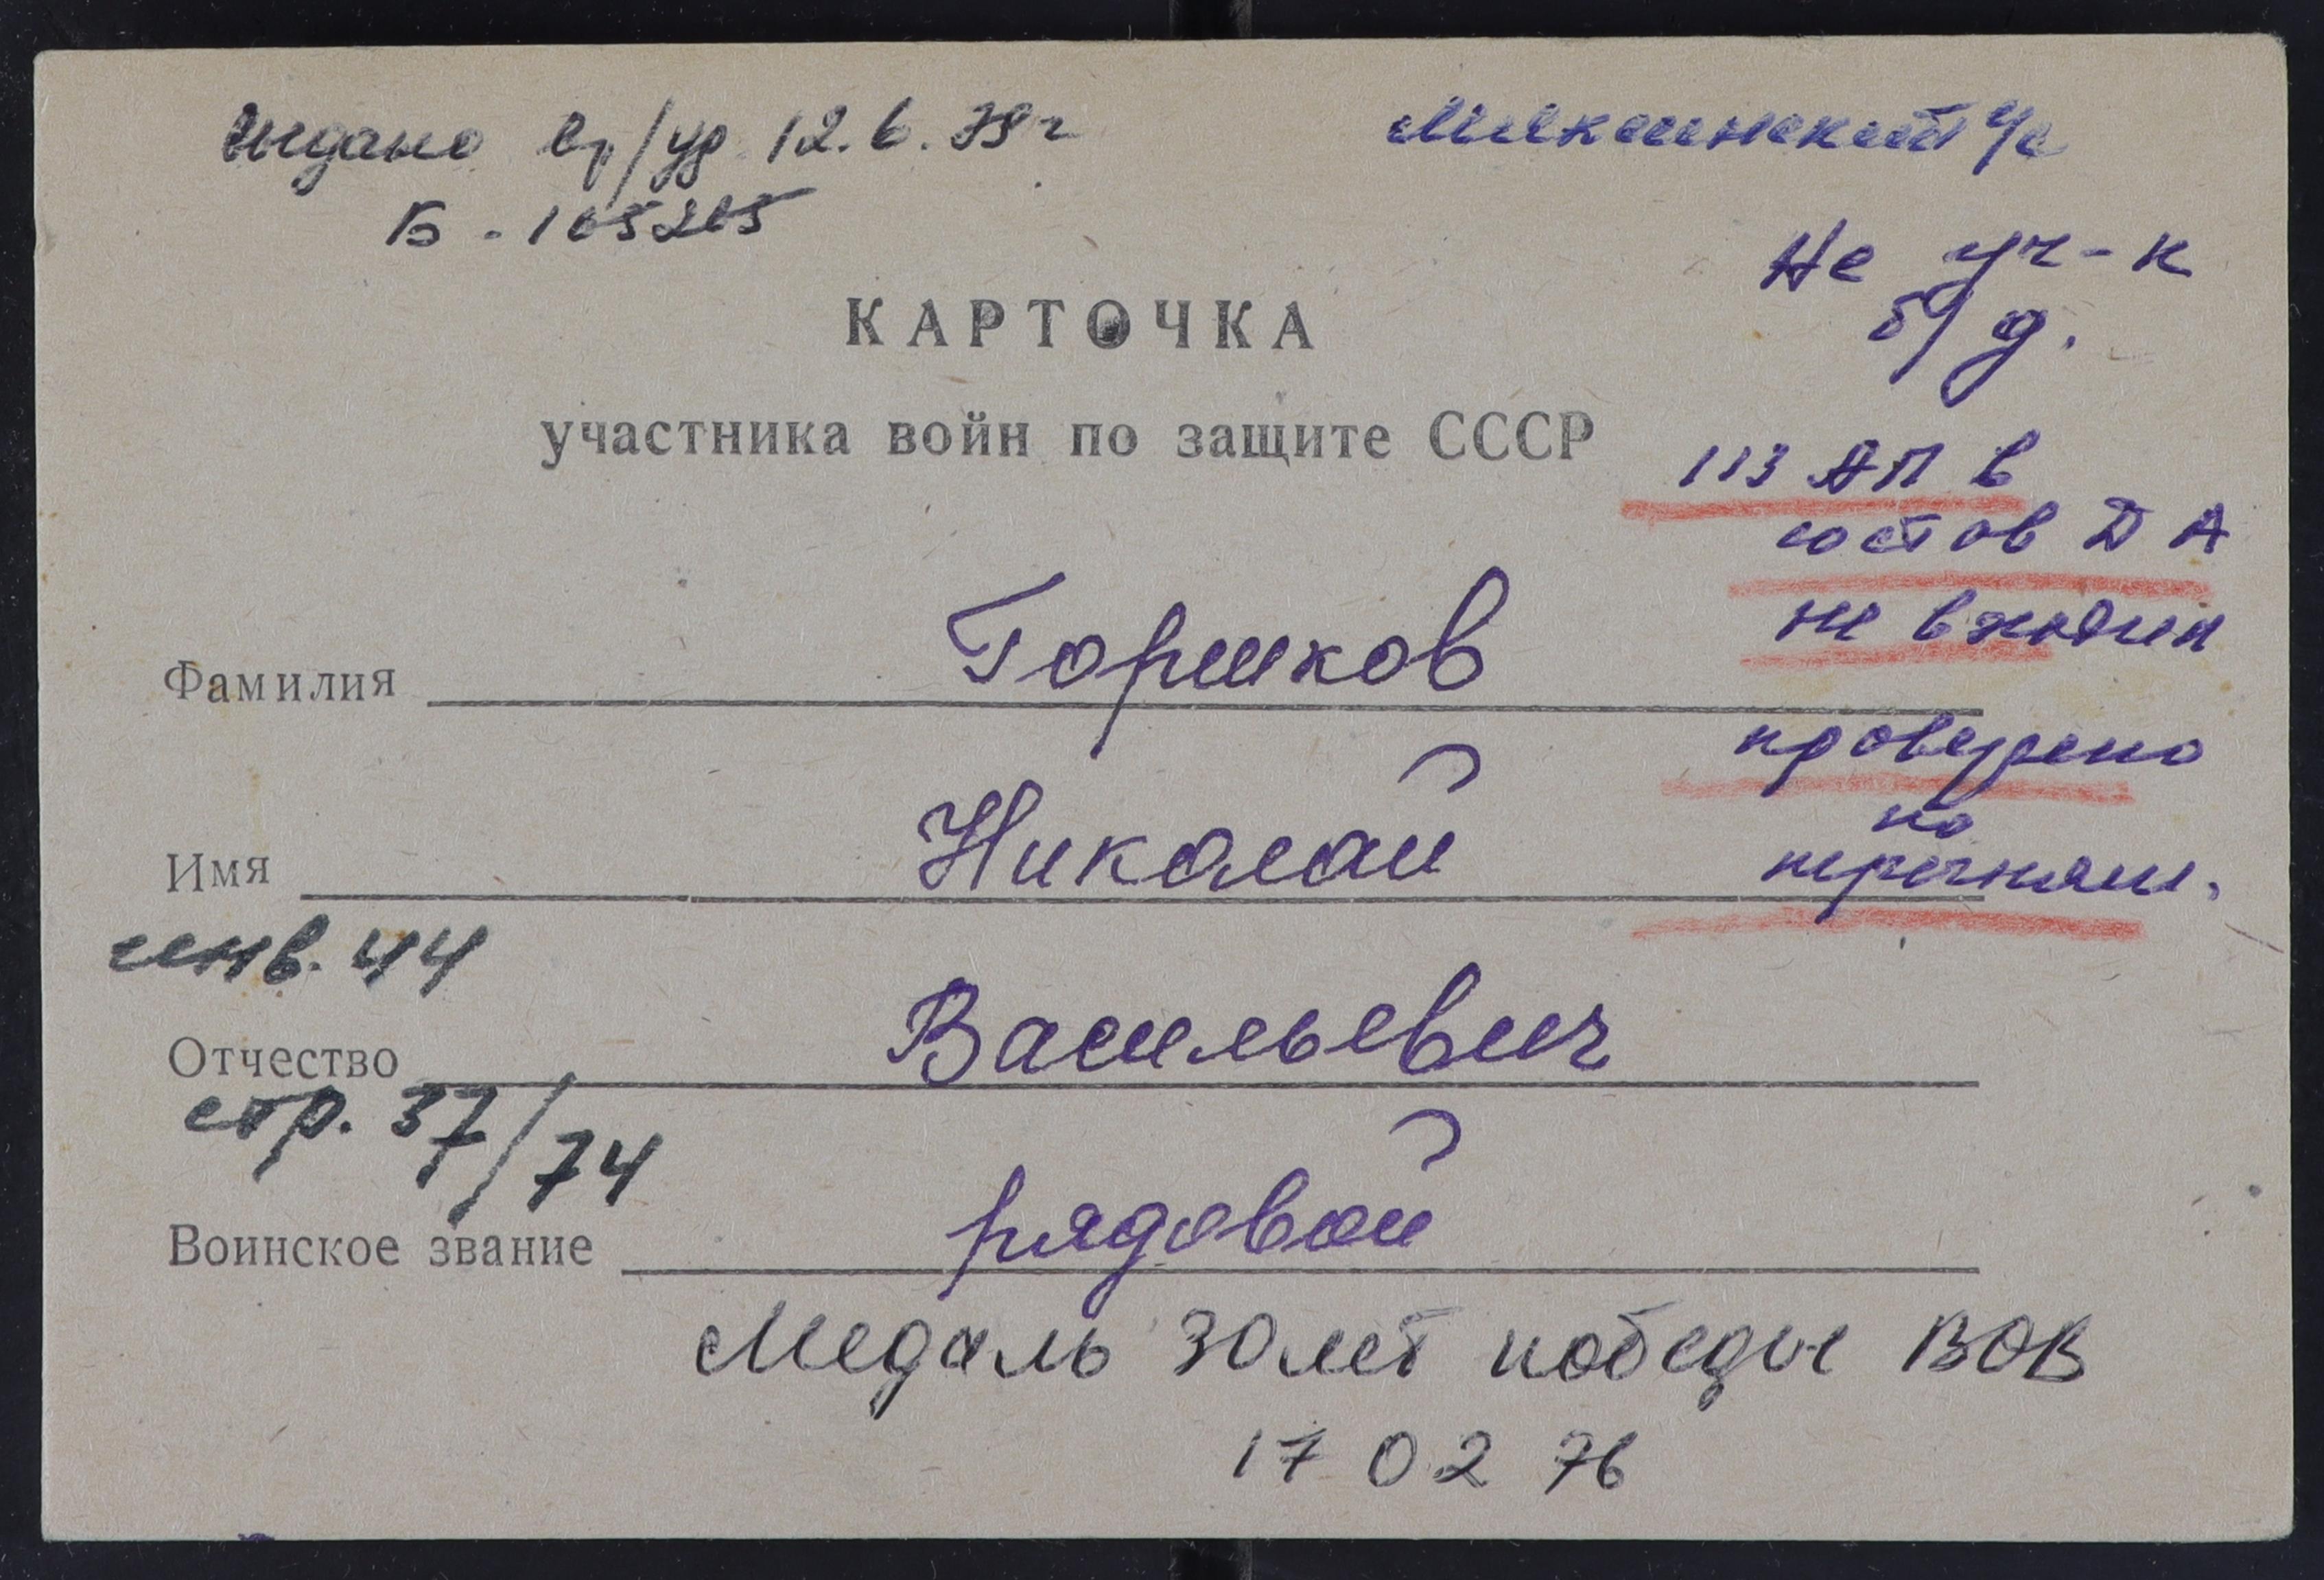 Выдано 12.6.79 г
Б - 165265
с/с
Не уч-к
б/д.
КАРТОЧКА
участника войн по защите СССР
113 АП в
состав ДА
не входил
проверено
по
перечням.
Фамилия Горшков
Имя Николай
инв. 44
Отчество Васильевич
стр. 37/74
Воинское звание рядовой
Медаль 30 лет победы ВОВ
17 02 76